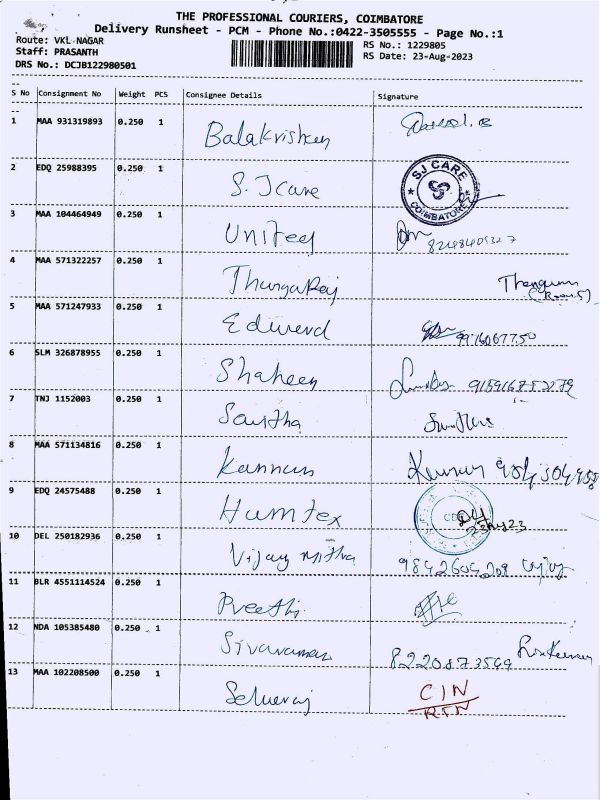 THE PROFESSIONAL COURIERS, COIMBATORE
Delivery Runsheet - PCM - Phone No.:0422-3505555 - Page No.:1
Route: VKL NAGAR
RS No.: 1229805
Staff: PRASANTH
RS Date: 23-Aug-2023
DRS No.: DCJB122980501
S No Consignment No Weight PCS Consignee Details Signature
1 MAA 931319893 0.250 1 Balakrishnan
2 EDQ 25988395 0.250 1 S.J Care SJ CARE COIMBATORE
3 MAA 104464949 0.250 1 United
4 MAA 571322257 0.250 1 Thangaraj
5 MAA 571247933 0.250 1 Edward 9976067750
6 SLM 326878955 0.250 1 Shaheen
7 TNJ 1152003 0.250 1
8 MAA 571134816 0.250 1 Kannan
9 EDQ 24575488 0.250 1 Humtex
10 DEL 250182936 0.250 1 Vijay Mitha 9842604209
11 BLR 4551114524 0.250 1 Preethi
12 NDA 105385480 0.250 1 Sivaraman 8220873569
13 MAA 102208500 0.250 1 Selvaraj CIN
RTN